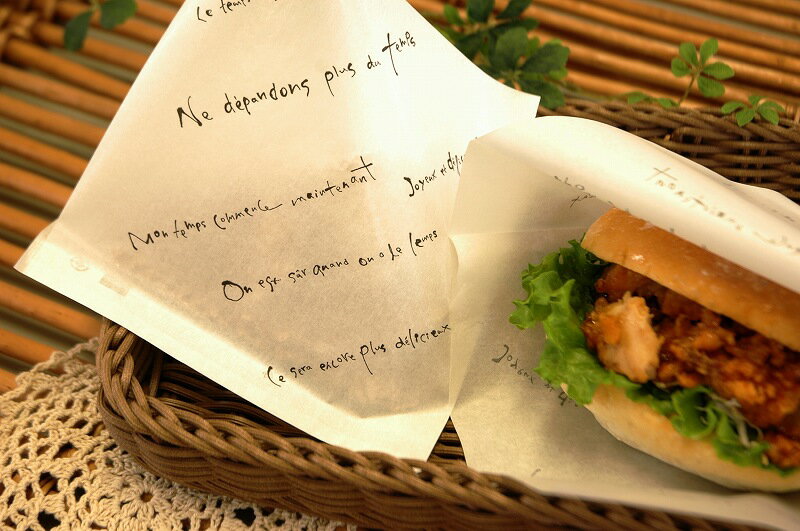 Ce temps
Ne dépandons plus du temps
Mon temps commence maintenant
Joyeux et
On est sûr quand on a le temps
Ce sera encore plus délicieux